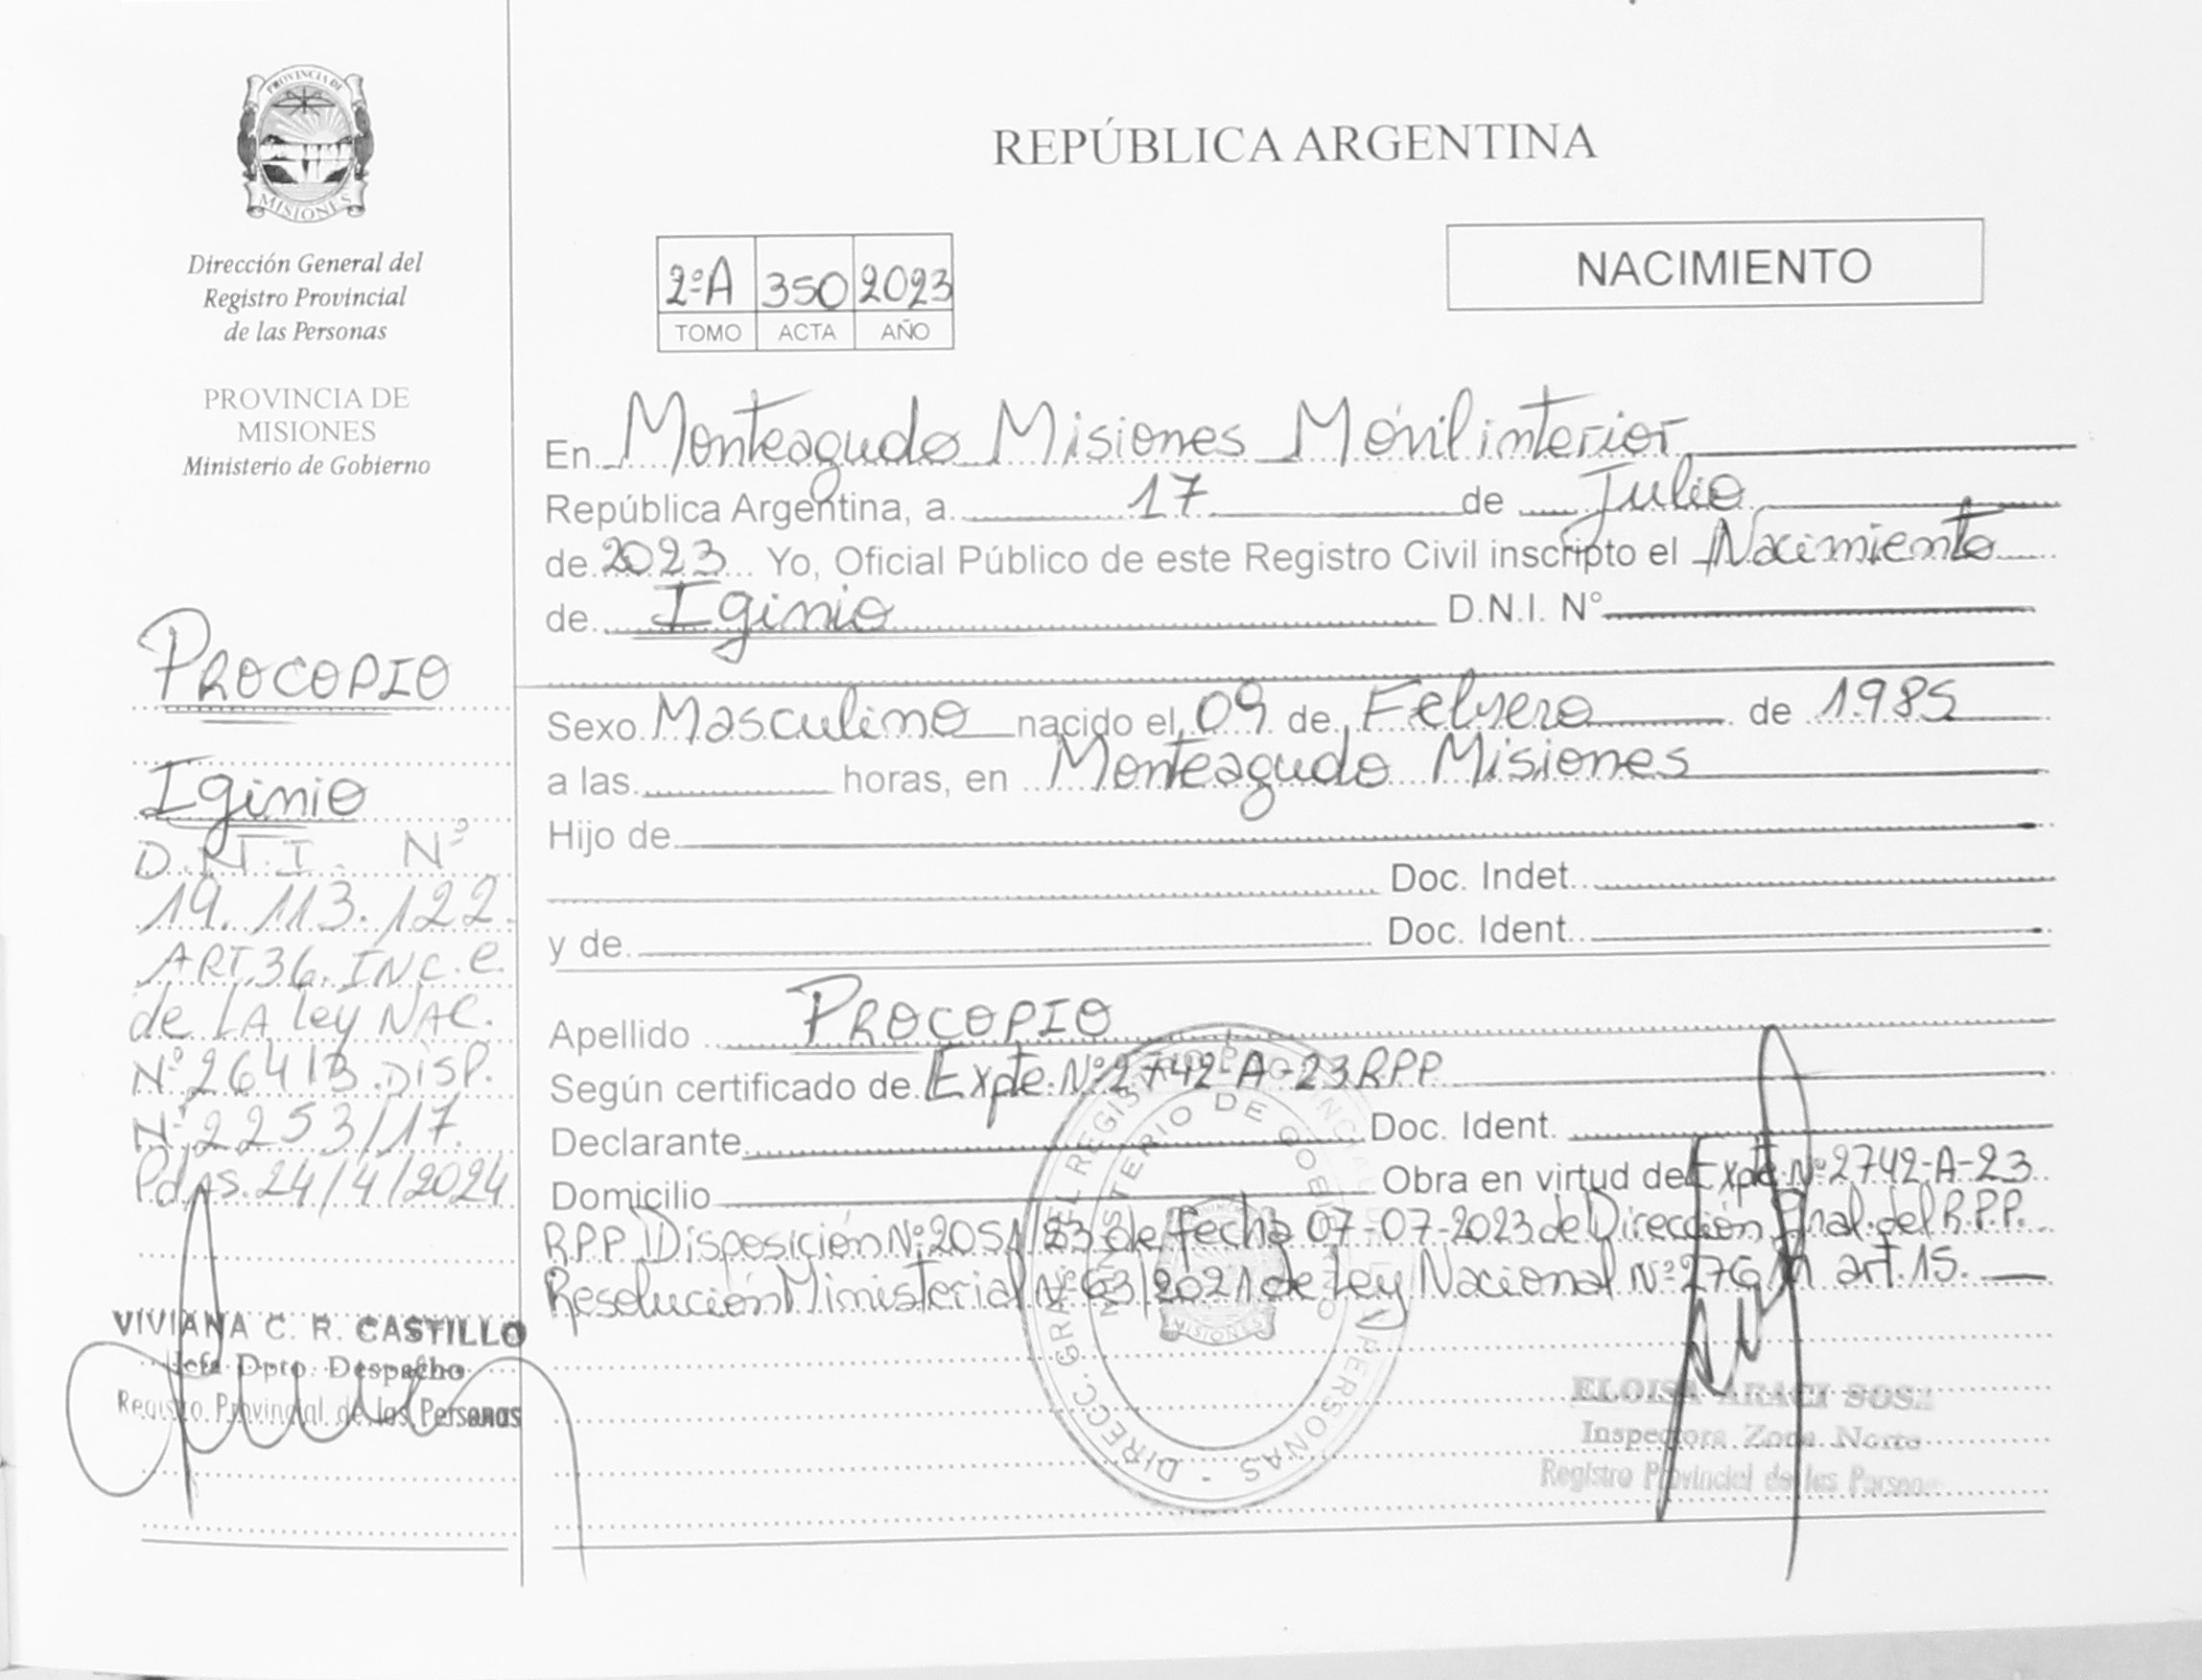 PROVINCIA DE
MISIONES
Dirección General del
Registro Provincial
de las Personas
PROVINCIA DE
MISIONES
Ministerio de Gobierno
PROCOPIO
Iginio
D.N.I. Nº
19.113.122
ART.36.INC.C.
de LA ley NAC.
Nº26413.DISP.
Nº2253/17.
Pdas.24/4/2024
VIVIANA C. R. CASTILLO
Jefe Dpto. Despacho
Registro Provincial de las Personas
REPÚBLICA ARGENTINA
NACIMIENTO
2ºA 350 2023
TOMO ACTA AÑO
En Monteagudo Misiones Móvil interior
República Argentina, a 17 de Julio
de 2023 Yo, Oficial Público de este Registro Civil inscripto el Nacimiento
de Iginio D.N.I. N°
Sexo Masculino nacido el 09 de Febrero de 1985
a las horas, en Monteagudo Misiones
Hijo de
Doc. Indet.
y de Doc. Ident.
Apellido PROCOPIO
Según certificado de Expte.Nº2742-A-23RPP
Declarante Doc. Ident.
Domicilio Obra en virtud de Expte Nº2742-A-23
RPP Disposición Nº2051/23 de fecha 07-07-2023 de Dirección Gral. del R.P.P.
Resolución Ministerial Nº63/2021 de Ley Nacional Nº art.15.
DIRECC. GRAL. DEL REGISTRO PROVINCIAL PERSONAS
MINISTERIO DE GOBIERNO
MISIONES
ELOISA ARACI SOSA
Inspectora Zona Norte
Registro Provincial de las Personas